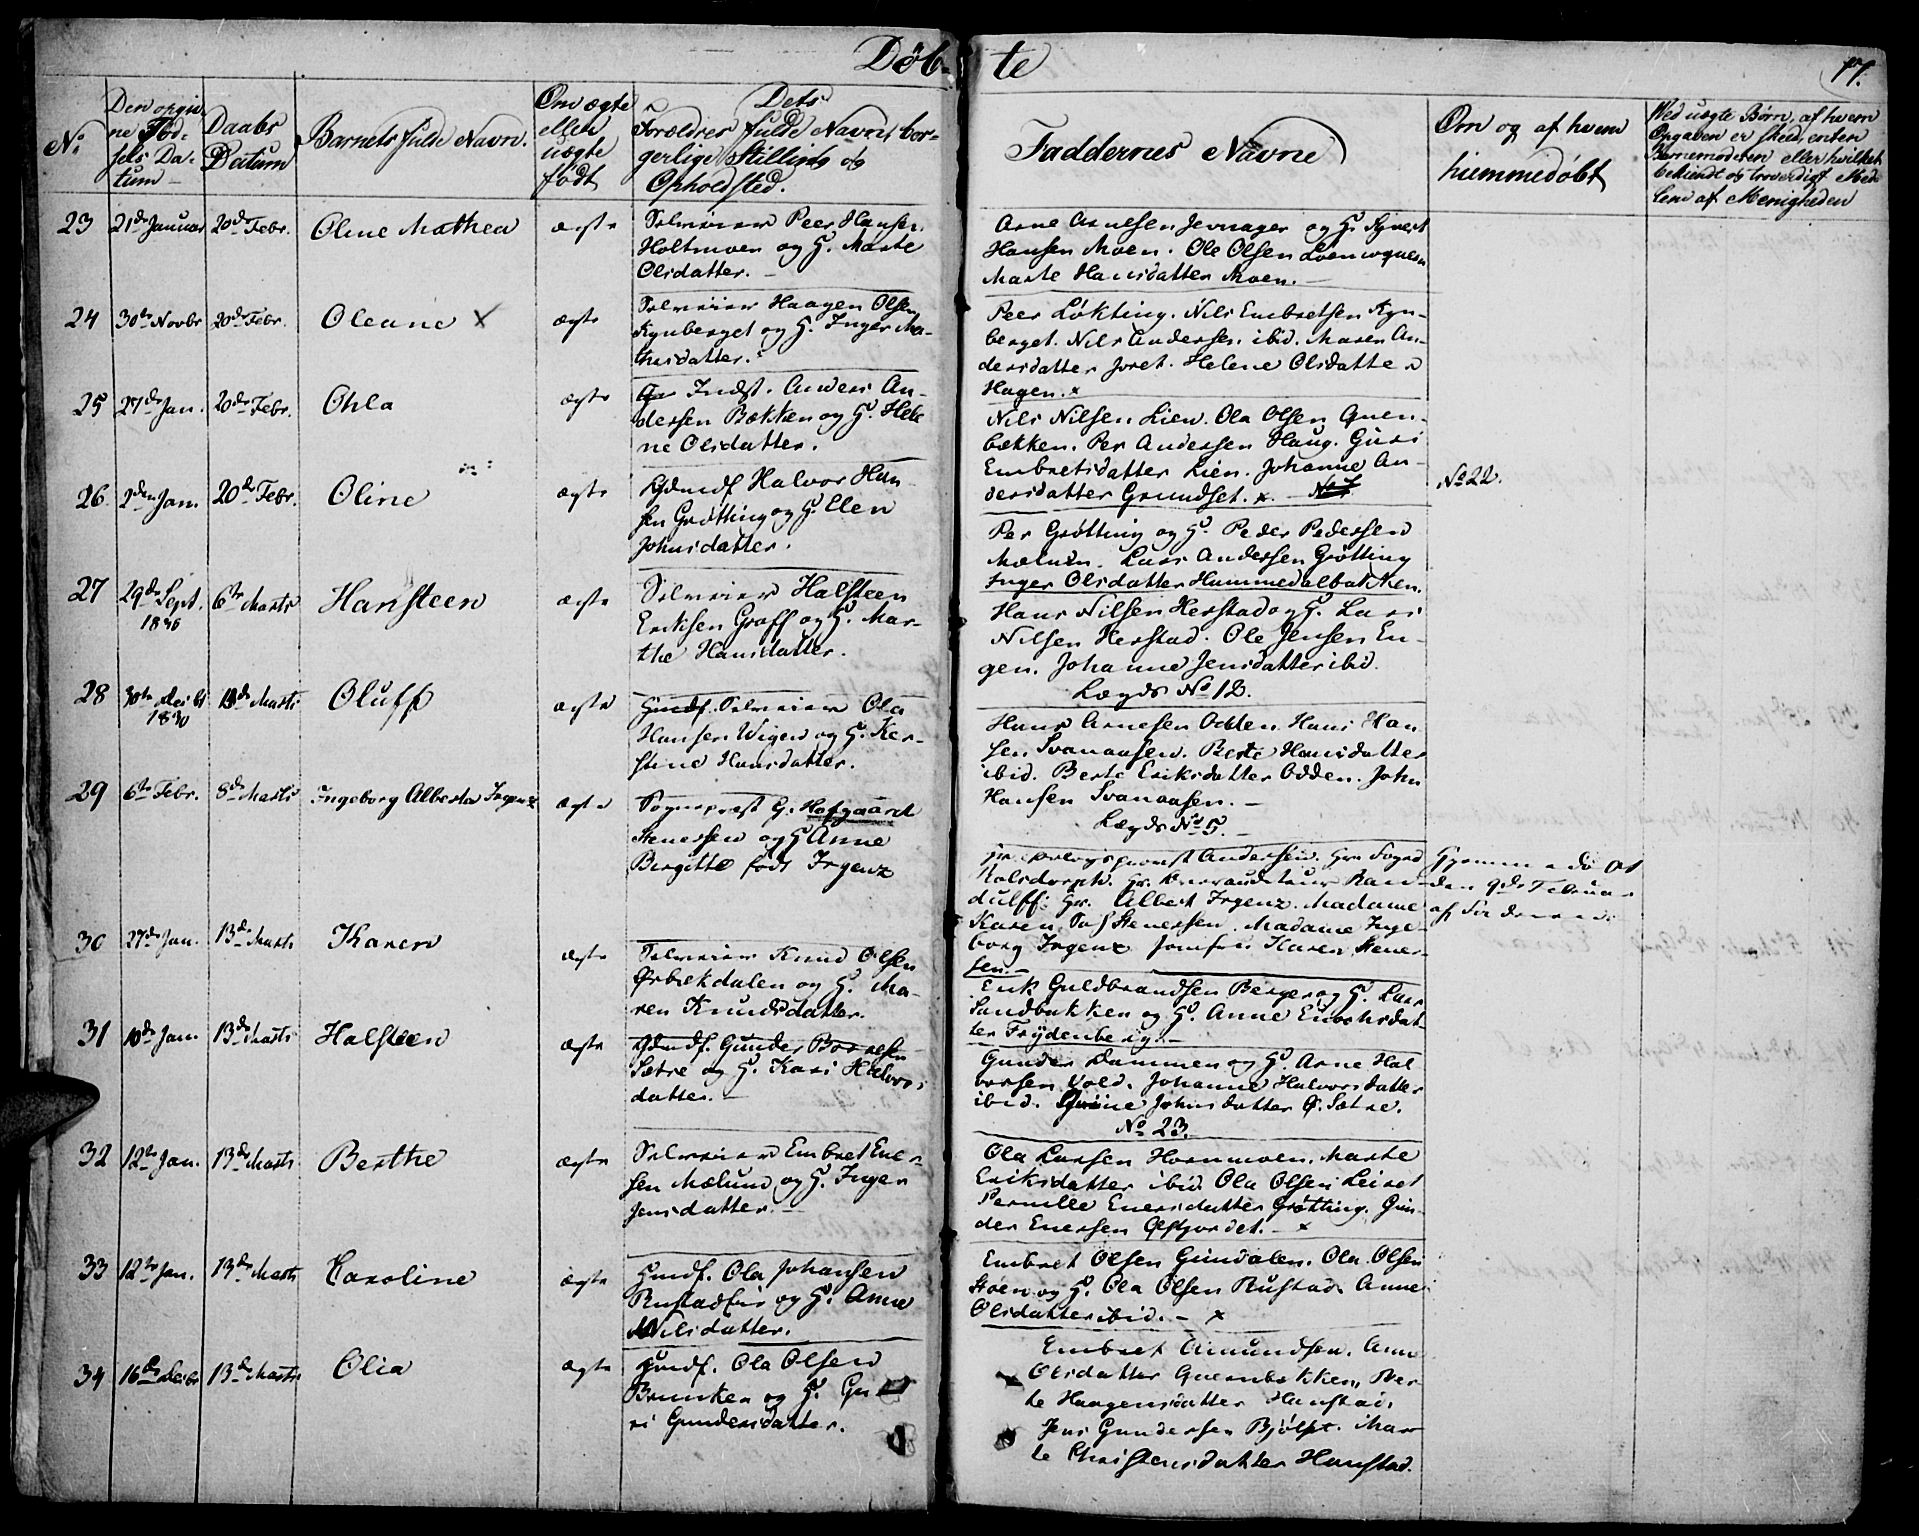 Døb-te
17.
No
Den opgivne Fødsels Datum
Daabs Datum
Barnets fulde Navn.
Om ægte eller uægte født
Dets Forældres fulde Navne borgerlige Stilling og Opholdsted.
Faddernes Navne
Om og af hvem hiemmedøbt
Ved uægte Børn, af hvem Opgaven er skeed, enten Barnemoderen eller hvilket bekiendt og troværdigt Medlem af Menigheden
23 21de Januar 20de Febr. Oline Mathea ægte
Selveier Peer Hansen
Holtmoen og H. Marte
Olsdatter. —
Arne Arnesen Jevnager og H. Syvert
Hansen Moen. Ole Olsen
Marte Hansdatter Moen. —
24 30te Novbr 20de Febr. Oleane x ægte
Selveier Haagen Olsen
Kynberget og H. Inger Ma-
thisdatter.
Peer Løkting. Nils Embretsen Kyn-
berget. Nils Andersen ibid. Maren An-
dersdatter Joret. Helene Olsdatter
Hagen. x
25 27de Jan. 20de Febr. Ohla ægte
Indst. Anders An-
dersen Bækken og H. Hele
ne Olsdatter.
Nils Nilsen Lien. Ola Olsen Quen-
bækken. Per Andersen Haug. Guri
Embretsdatter Lien. Johanne An-
dersdatter Grundset. x. —
No 22.
26. 2den Jan. 20de Febr. Oline ægte
Gdmdf Halvor Han
sen Grøtting og H. Elen
Johnsdatter.
Per Grøtting og H. Peder Pedersen
Mælum. Lars Andersen Grøtting
Inger Olsdatter Hummedalbakken.
27 29de Sept. 1830 6te Marts Hansteen ægte
Selveier Halsteen
Eriksen Groff og H. Mar-
the Hansdatter.
Hans Nilsen Herstad og H. Lars
Nilsen Herstad. Ole Jensen En-
gen. Johanne Jensdatter ibid.
Lægds No 12.
28 30te Decbr 1830 13de Marts Oluff ægte
Selveier Ola
Hansen Wigen og H. Ker-
stine Hansdatter.
Hans Arnesen Odden. Hans Han
sen Svanaasen. Berte Hansdatter
ibid. Berte Eriksdatter Odden. John
Hansen Svanaasen. —
Lægds No 5. —
29 6te Febr. 8de Marts Ingeborg Alberta Irgenz ægte
Sogneprest G. Hofgaard
Stenersen og H Anne
Birgitte født Irgenz
Andersen. Hr. Foged
Hr. Ran-
dulff. Hr. Albert Irgenz. Madame
Karen Stenersen. Madame Inge-
borg Irgenz Jomfru Karen Stener-
sen. —
Hjemmedøbt
den 9de Februar
af Faderen.
30 27de Jan. 13de Marts Karen ægte
Selveier Knud Olsen
Ørbækdalen og H. Ma-
ren Knudsdatter.
Erik Guldbrandsen Berger og H. Lars
Sandbakken og H. Anne Enochsdat-
ter Frydenberg. —
31 10de Jan. 13de Marts Halsteen ægte
Gdmdf. Gunder
Sætre og H. Kari Halvors
datter. —
Gunder Dammen og H. Arne Hal
vorsen Vold. Johanne Halvorsdatter
ibid. Johnsdatter Ø. Sætre.
No 23.
32 12te Jan. 13de Marts Berthe ægte
Selveier Embret Ener-
sen Mælum og H. Inger
Jensdatter. —
Ola Larsen Hornmoen. Marte
Eriksdatter ibid. Ola Olsen Leiret
Pernille Enersdatter Grøtting. Gun-
der Enersen Øefjordet. — x
33 12te Jan. 13de Marts Karoline ægte
Hmdf. Ola Johansen
Rustadeie og H. Anne
Nilsdatter.
Embret Olsen Gundalen. Ola Olsen
Støen og H. Ola Olsen Rustad. Anne
Olsdatter ibid. — x
34 16de Decbr 13de Marts Olia ægte
Hmdf. Ola Olsen
Brunken og H. Gu
ri Gundersdatter.
Embret Amundsen. Anne
Olsdatter Quernbækken, Ber-
te Haagensdatter Hanstad.
Jens Gundersen Bjølset. Mar
te Christensdatter Hanstad.